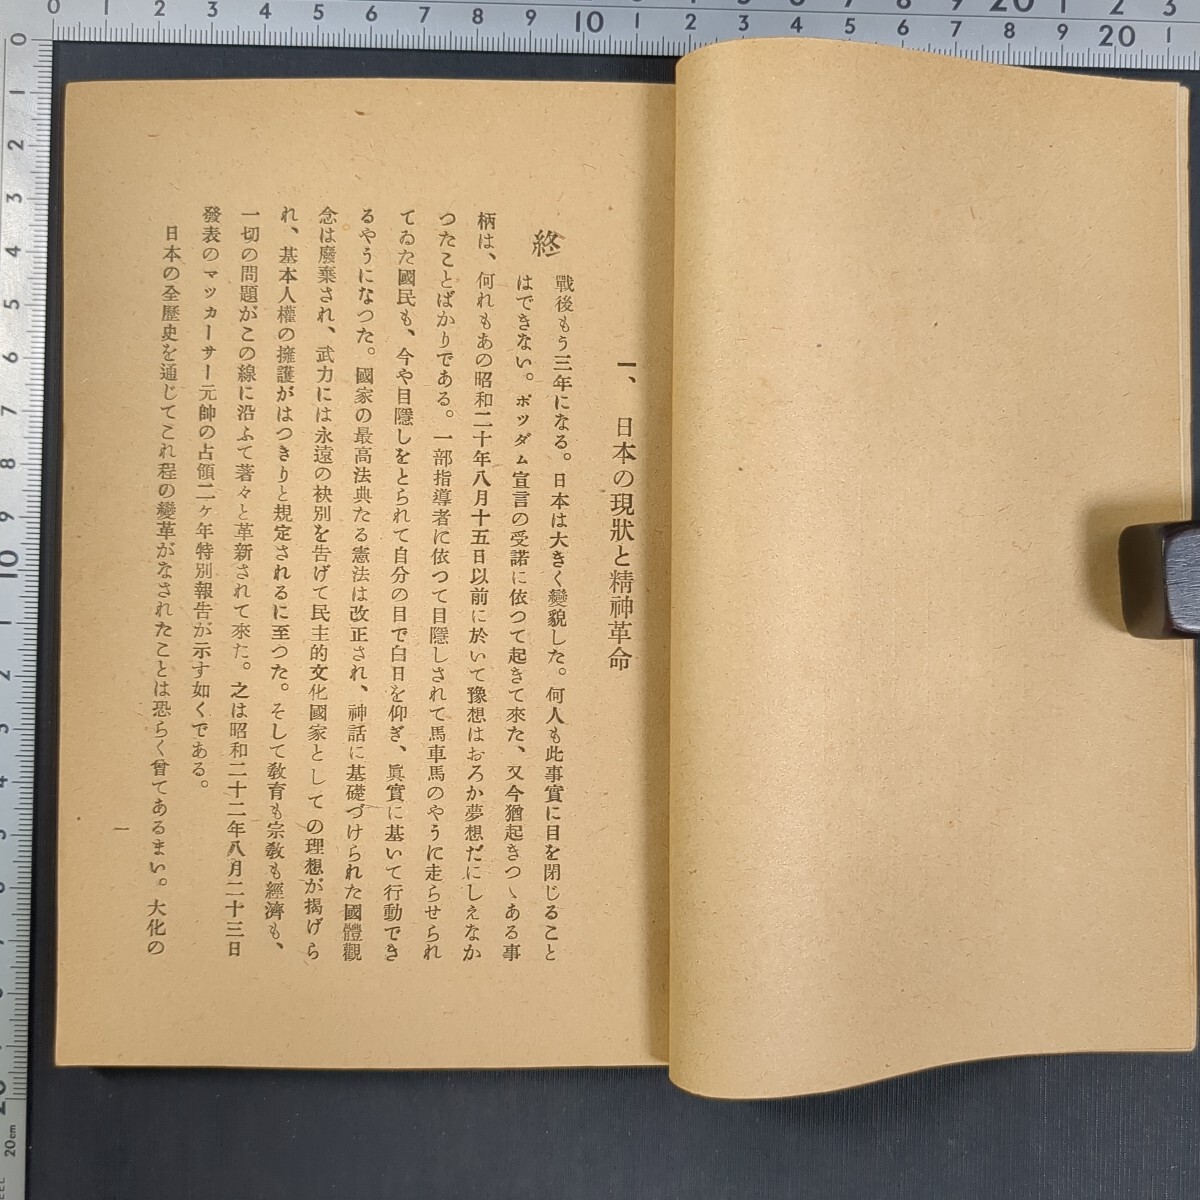 一、日本の現狀と精神革命
終戰後もう三年になる。日本は大きく變貌した。何人も此事實に目を閉じること
はできない。ポツダム宣言の受諾に依つて起きて來た、又今猶起きつゝある事
柄は、何れもあの昭和二十年八月十五日以前に於いて豫想はおろか夢想だにしえなか
つたことばかりである。一部指導者に依つて目隱しされて馬車馬のやうに走らせられ
てゐた國民も、今や目隱しをとられて自分の目で白日を仰ぎ、眞實に基いて行動でき
るやうになつた。國家の最高法典たる憲法は改正され、神話に基礎づけられた國體觀
念は廢棄され、武力には永遠の袂別を告げて民主的文化國家としての理想が揭げら
れ、基本人權の擁護がはつきりと規定されるに至つた。そして敎育も宗敎も經濟も、
一切の問題がこの線に沿ふて著々と革新されて來た。之は昭和二十二年八月二十三日
發表のマッカーサー元帥の占領二ヶ年特別報告が示す如くである。
日本の全歷史を通じてこれ程の變革がなされたことは恐らく曾てあるまい。大化の
一
0 1 2 3 4 5 6 7 8 9 10 1 2 3 4 5 6 7 8 9 20 1 2 3
1 2 3 4 5 6 7 8 9 10 1 2 3 4 5 6 7 8 9 20 1
0 1 2 3 4 5 6 7 8 9 10 1 2 3 4 5 6 7 8 9 20
20cm